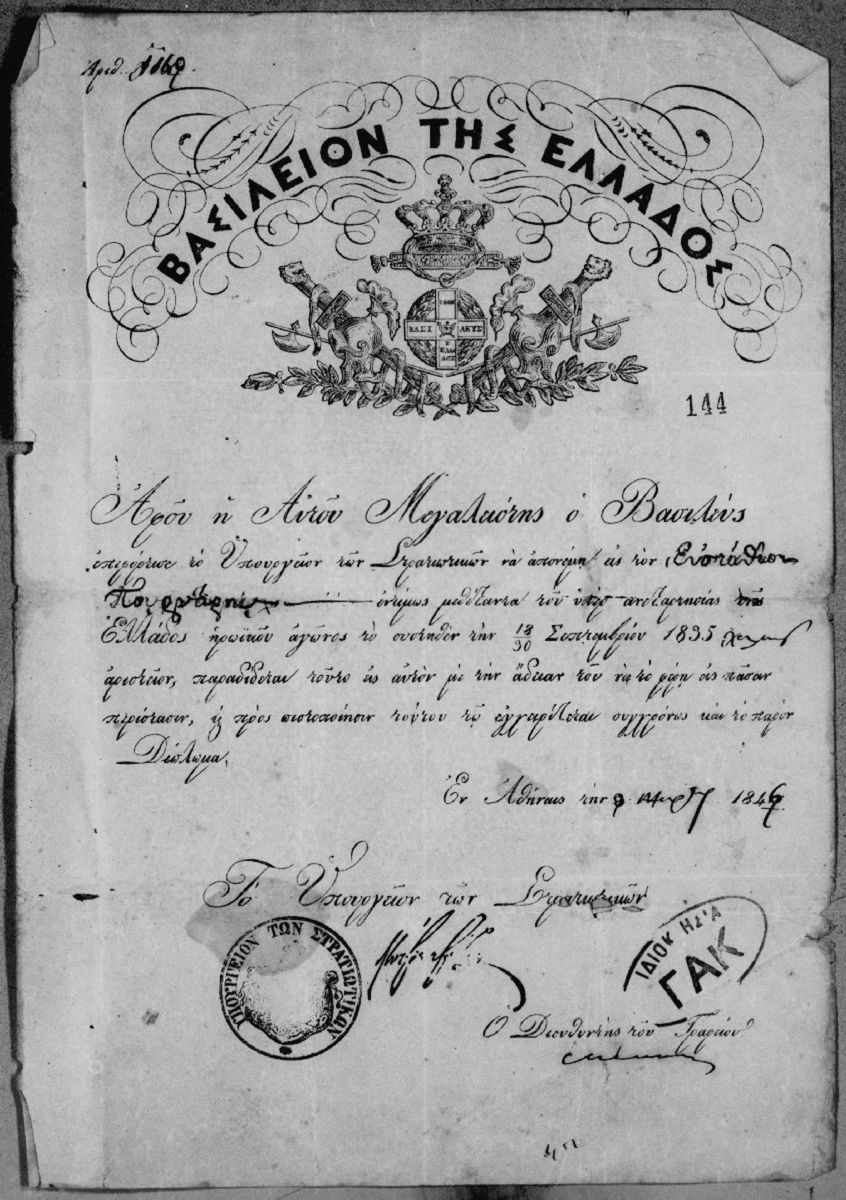 Αριθ.
ΒΑΣΙΛΕΙΟΝ ΤΗΣ ΕΛΛΑΔΟΣ
ΒΑΣΙ ΛΕΥΣ
ΕΛΛΑ
ΔΟΣ
144
Ἀφοῦ ἡ Αὐτοῦ Μεγαλειότης ὁ Βασιλεὺς
ἐπεφόρτισε τὸ Ὑπουργεῖον τῶν Στρατιωτικῶν νὰ ἀπονέμῃ εἰς τὸν Εὐστάθιον
ἐντίμως μεθέξαντα τοῦ ὑπὲρ ἀνεξαρτησίας τῆς
Ἑλλάδος ἡρωϊκοῦ ἀγῶνος τὸ συστηθὲν τὴν 18/30 Σεπτεμβρίου 1835
ἀριστεῖον, παραδίδεται τοῦτο εἰς αὐτὸν μὲ τὴν ἄδειαν τοῦ νὰ τὸ φέρῃ εἰς πᾶσαν
περίστασιν, ᾗ πρὸς πιστοποίησιν τούτου τῷ ἐγχειρίζεται συγχρόνως καὶ τὸ παρὸν
Δίπλωμα.
Ἐν Ἀθήναις τὴν 9 184
Τὸ Ὑπουργεῖον τῶν Στρατιωτικῶν
ΥΠΟΥΡΓΕΙΟΝ ΤΩΝ ΣΤΡΑΤΙΩΤΙΚΩΝ
ΙΔΙΟΚΤΗΣΙΑ
ΓΑΚ
Ὁ Διευθυντὴς τοῦ Γραφείου